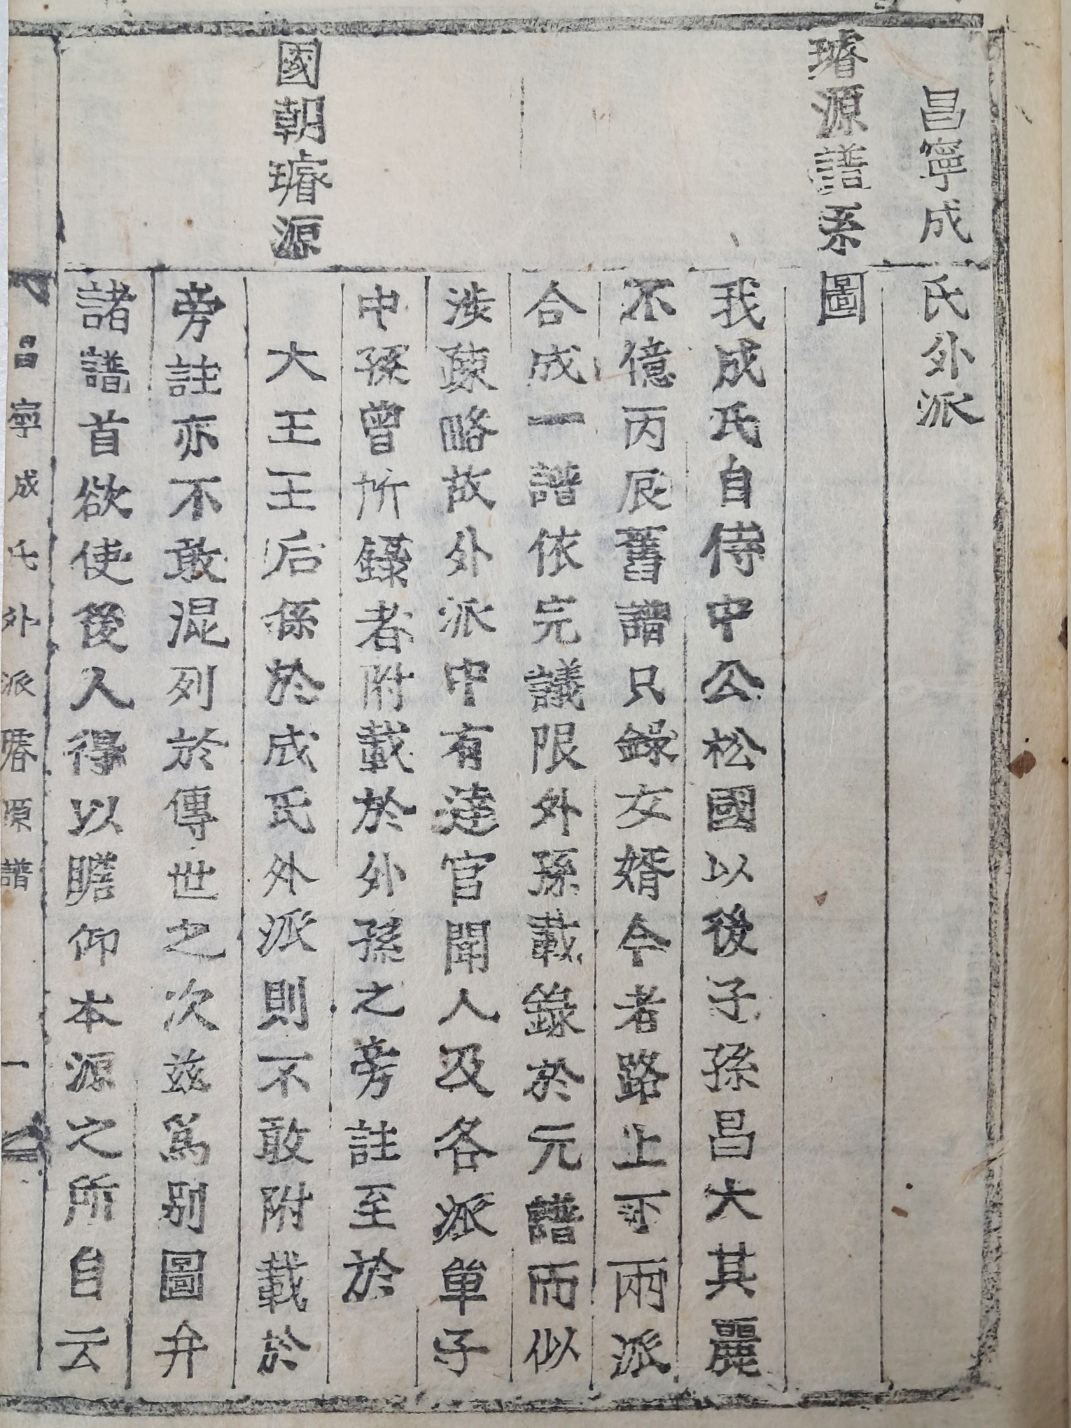 昌寧成氏外派
璿源譜系圖
我成氏自侍中公松國以後子孫昌大其麗
不億丙辰舊譜只錄女婿今者路上可兩派
合成一譜依完議限外孫載錄於元譜而似
涉踈略故外派中有達官聞人及各派單子
中孫曾所錄者附載於外孫之旁註至於
國朝璿源
大王王后係於成氏外派則不敢附載於
旁註亦不敢混列於傳世之次玆爲別圖弁
諸譜首欲使後人得以瞻仰本源之所自云
昌寧成氏外派璿源譜 一